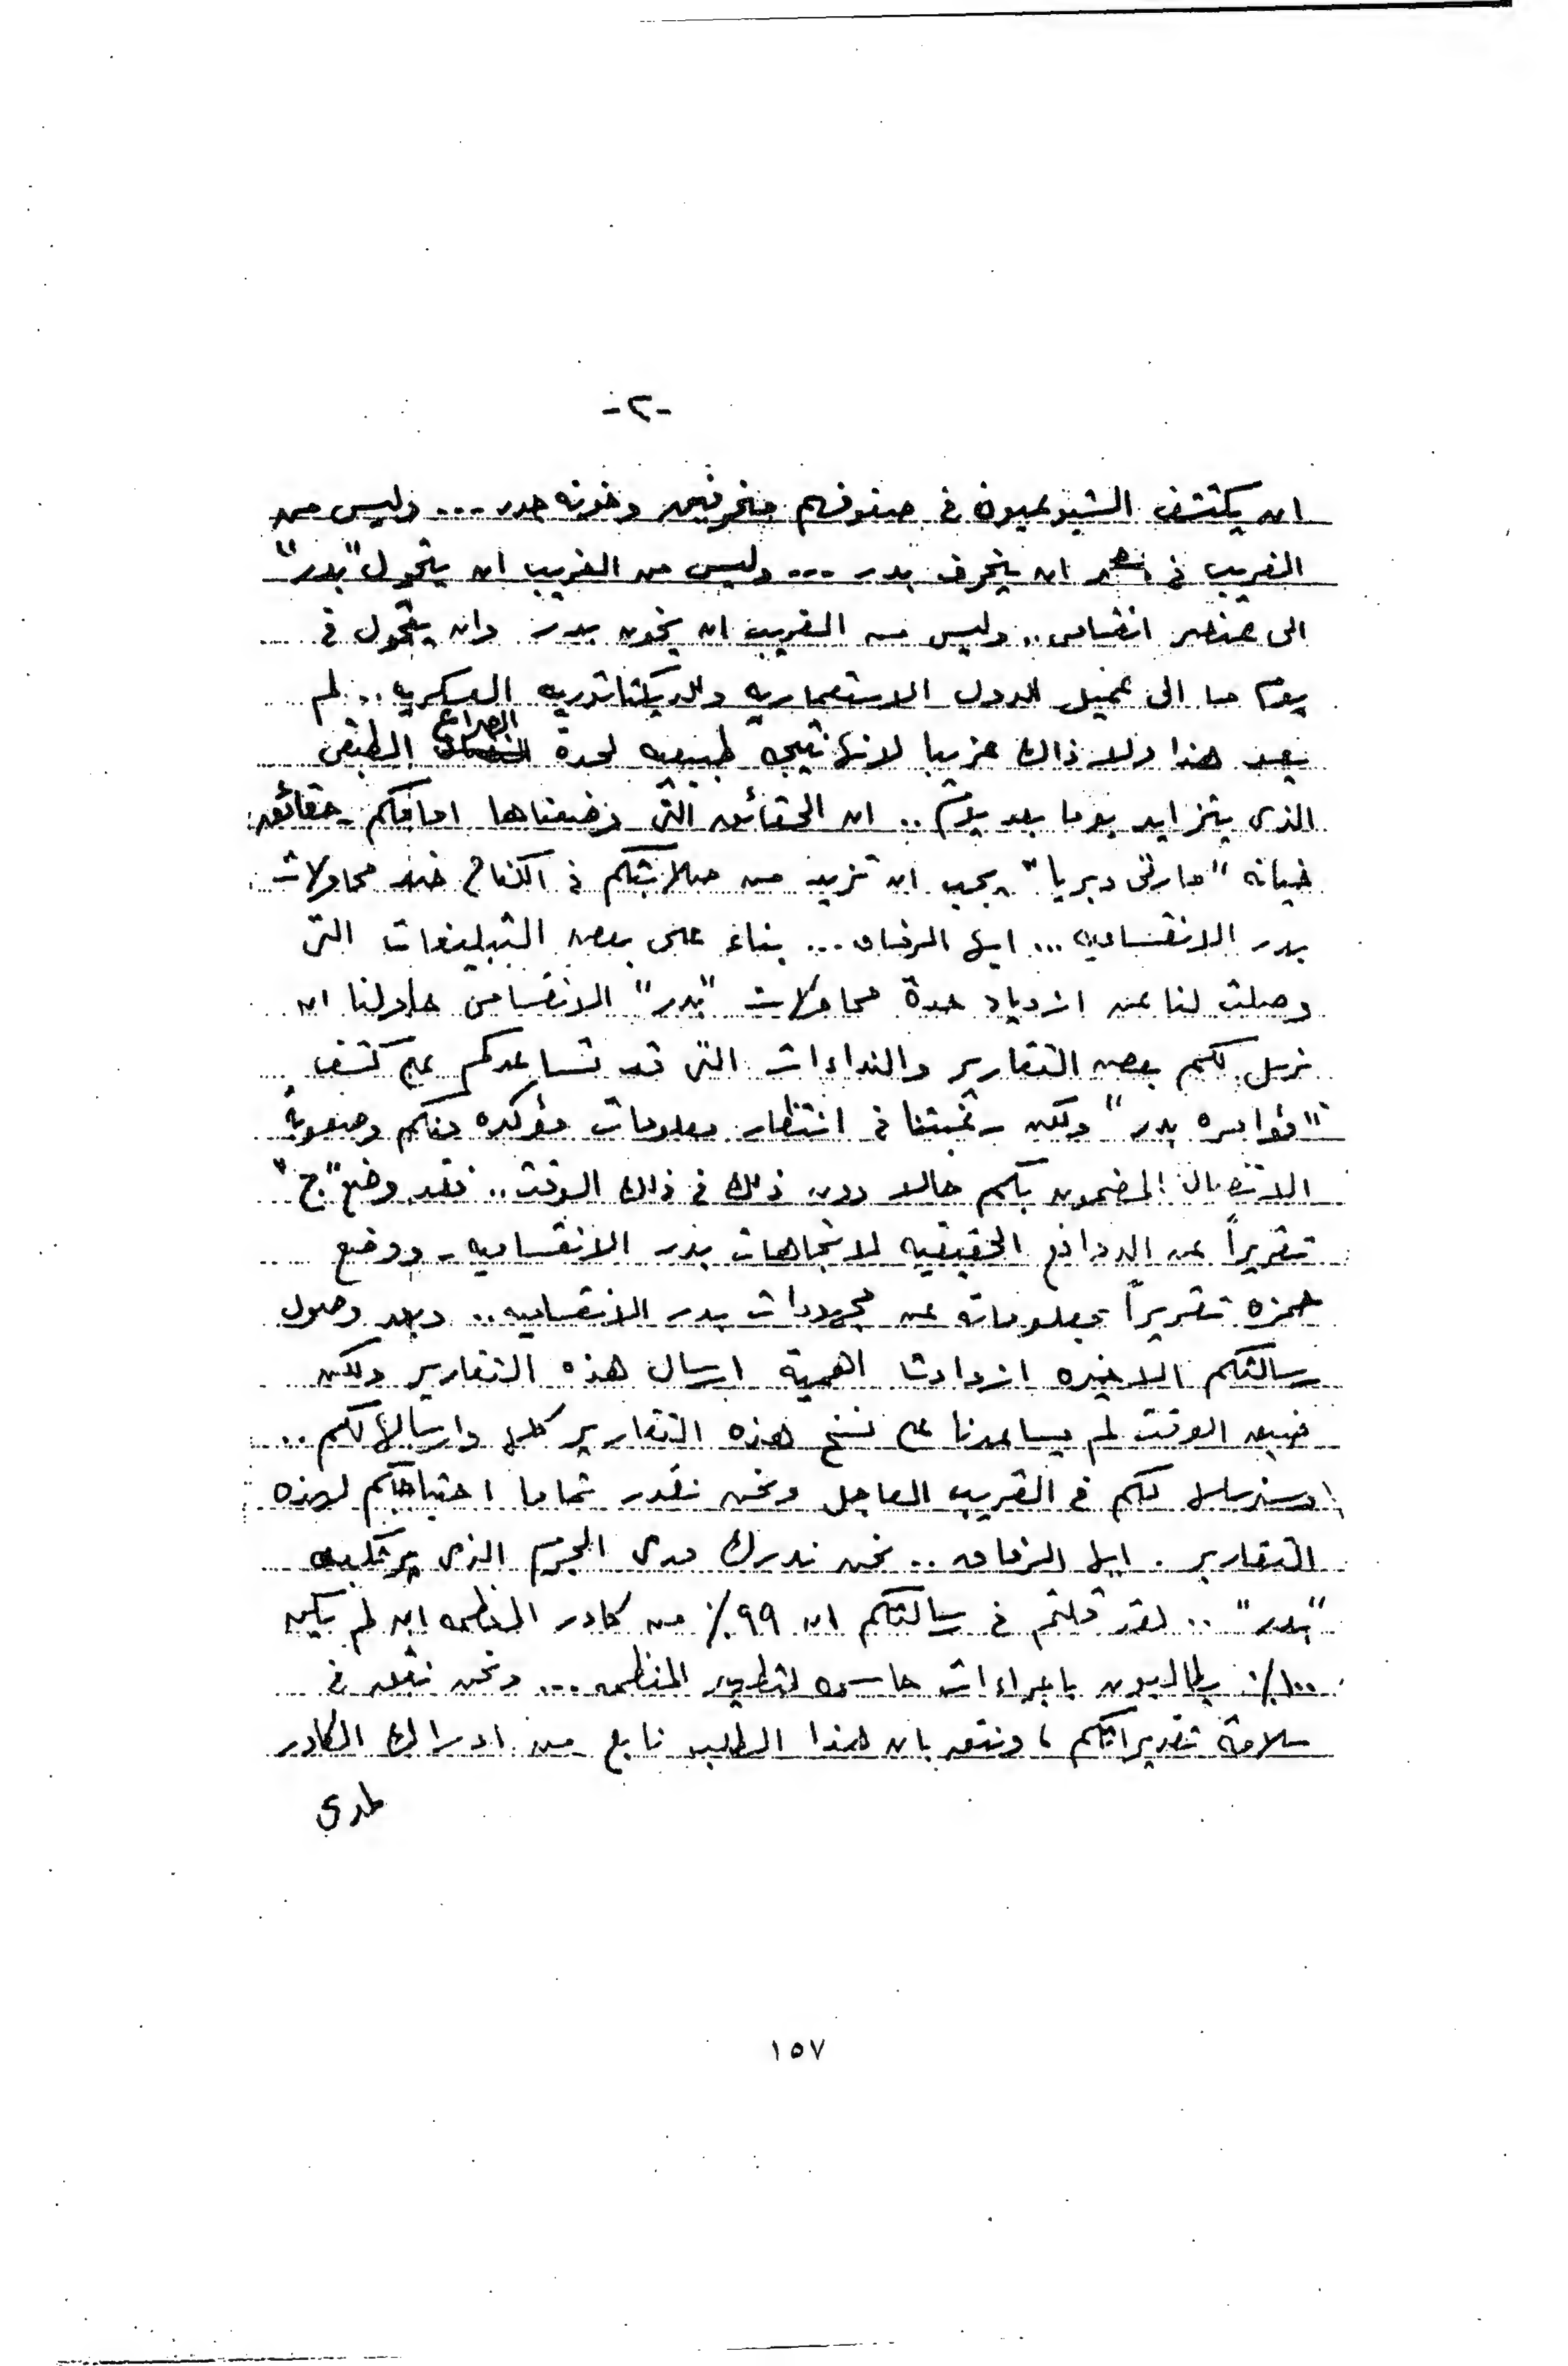 -٢-
ان يكتشف الشيوعيون في صفوفهم منحرفين وخونه جدد ... وليس من
الغريب في ان ينحرف بدر ... وليس من الغريب ان يتحول "بدر"
الى عنصر انقسامى .. وليس من الغريب ان يخون بدر وان يتحول في
يوم ما الى عميل للدول الاستعماريه وللديكتاتوريه العسكريه .. لم
يعد هذا ولا ذاك غريبا لانها نتيجه طبيعيه لحدة الصراع الطبقى
الذى يتزايد يوما بعد يوم .. ان الحقائق التى وضعناها امامكم - حقائق
خيانه "مارتى وبريا" يجب ان تزيد من صلابتكم في الكفاح ضد محاولات
بدر الانقساميه ... ايها الرفاق ... بناء على بعض التبليغات التى
وصلت لنا عن ازدياد حدة محاولات "بدر" الانقسامى حاولنا ان
نرسل لكم بعض التقارير والنداءات التى قد تساعدكم على كشف
"مؤامره بدر" ولكن رغبتنا في انتظار معلومات مؤكده منكم وصعوبة
الاتصال المضمون بكم حالا دون ذلك في ذلك الوقت .. فقد وضع "ج"
تقريراً عن الدوافع الحقيقيه لاتجاهات بدر الانقساميه - ووضع
حمزه تقريراً بمعلوماته عن مجهودات بدر الانقساميه .. وبعد وصول
رسالتكم الاخيره ازدادت اهمية ارسال هذه التقارير ولكن
ضيق الوقت لم يساعدنا على نسخ هذه التقارير كلها وارسالها لكم ..
وسنرسلها لكم في القريب العاجل ونحن نقدر تماما احتياجكم لهذه
التقارير . ايها الرفاق .. نحن ندرك مدى الجرم الذى يرتكبه
"بدر" .. لقد قلتم في رسالتكم ان ٩٩٪ من كادر المنظمه ان لم يكن
١٠٠٪ يطالبون باجراءات حاسمه لتطهير المنظمه ... ونحن نثق في
سلامة تقديراتكم ، ونثق بان هذا الطلب نابع من ادراك الكادر
لمدى
١٥٧